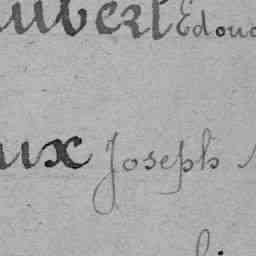 ubert Edoua
ux Joseph